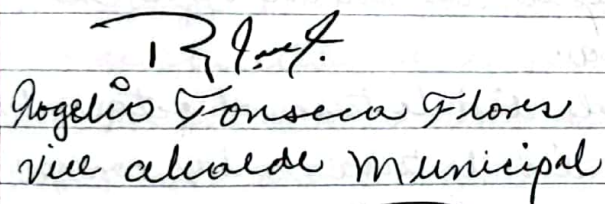 Rogelio Fonseca Flores
vice alcalde Municipal